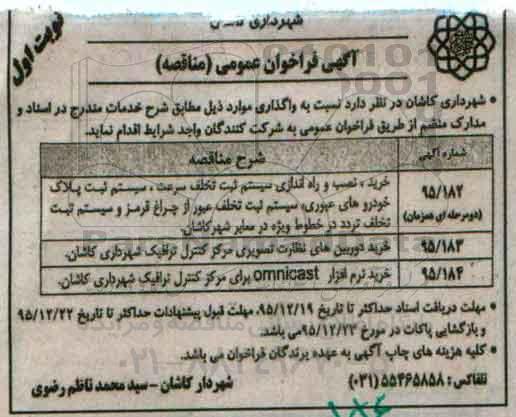 نوبت اول
شهرداری کاشان
آگهی فراخوان عمومی (مناقصه)
• شهرداری کاشان در نظر دارد نسبت به واگذاری موارد ذیل مطابق شرح خدمات مندرج در اسناد و
مدارک منضم از طریق فراخوان عمومی به شرکت کنندگان واجد شرایط اقدام نماید.
شماره آگهی شرح مناقصه
۹۵/۱۸۲ (دومرحله ای همزمان) خرید ، نصب و راه اندازی سیستم ثبت تخلف سرعت ، سیستم ثبت پلاک
خودرو های عبوری، سیستم ثبت تخلف عبور از چراغ قرمز و سیستم ثبت
تخلف تردد در خطوط ویژه در معابر شهر کاشان.
۹۵/۱۸۳ خرید دوربین های نظارت تصویری مرکز کنترل ترافیک شهرداری کاشان.
۹۵/۱۸۴ خرید نرم افزار omnicast برای مرکز کنترل ترافیک شهرداری کاشان.
• مهلت دریافت اسناد حداکثر تا تاریخ ۹۵/۱۲/۱۹، مهلت قبول پیشنهادات حداکثر تا تاریخ ۹۵/۱۲/۲۲
و بازگشایی پاکات در مورخ ۹۵/۱۲/۲۳می باشد.
• کلیه هزینه های چاپ آگهی به عهده برندگان فراخوان می باشد.
تلفاکس : ۵۵۴۶۵۸۵۸ (۰۳۱)
شهردار کاشان – سید محمد ناظم رضوی